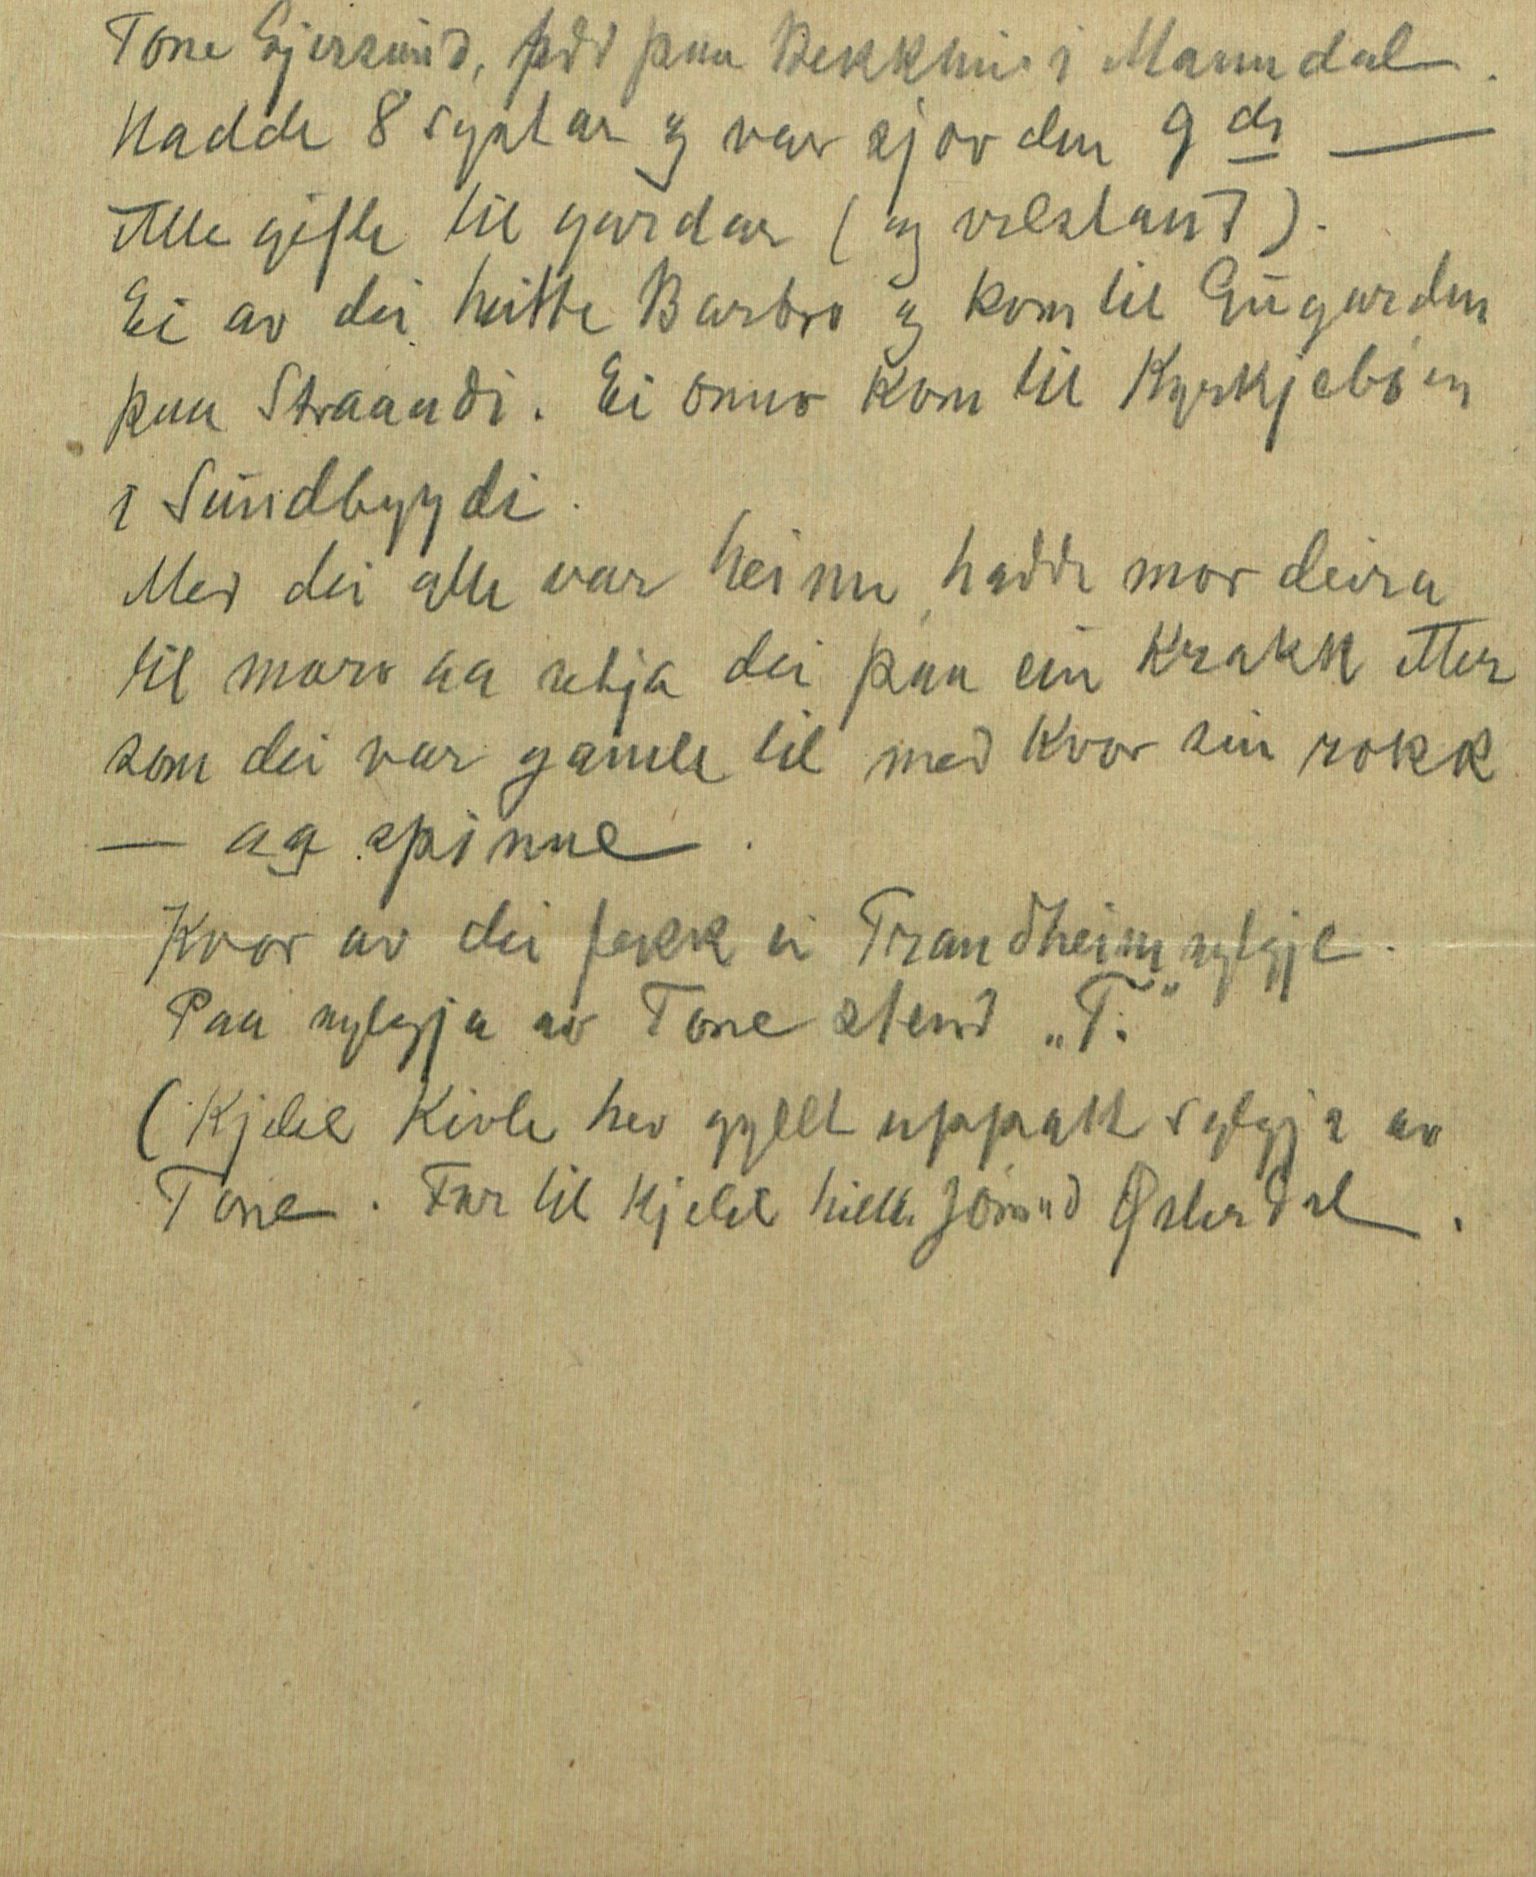 Tone Gjersund, född paa Bekkhus i Manndal.
Hadde 8 systar og var sjøv den 9 de —
Alle gifte til gardar (og velstand).
Ei av dei heitte Barbro og kom til Gugarden
paa Straandi. Ei onnor kom til Kyrkjebøen
i Sundbygdi.
Med dei alle var heime, hadde mor deira
til moro aa setja dei paa ein krakk etter
som dei var gamle til med kvar sin rokk
— aa spinne.
Kvar av dei fekk ei Trandheimsylgje.
Paa sylgja av Tone stend „T."
(Kjetil Kivle hev gyllt uppatt sylgja av
Tone. Far til Kjetil heitte Jörund Østerdal.